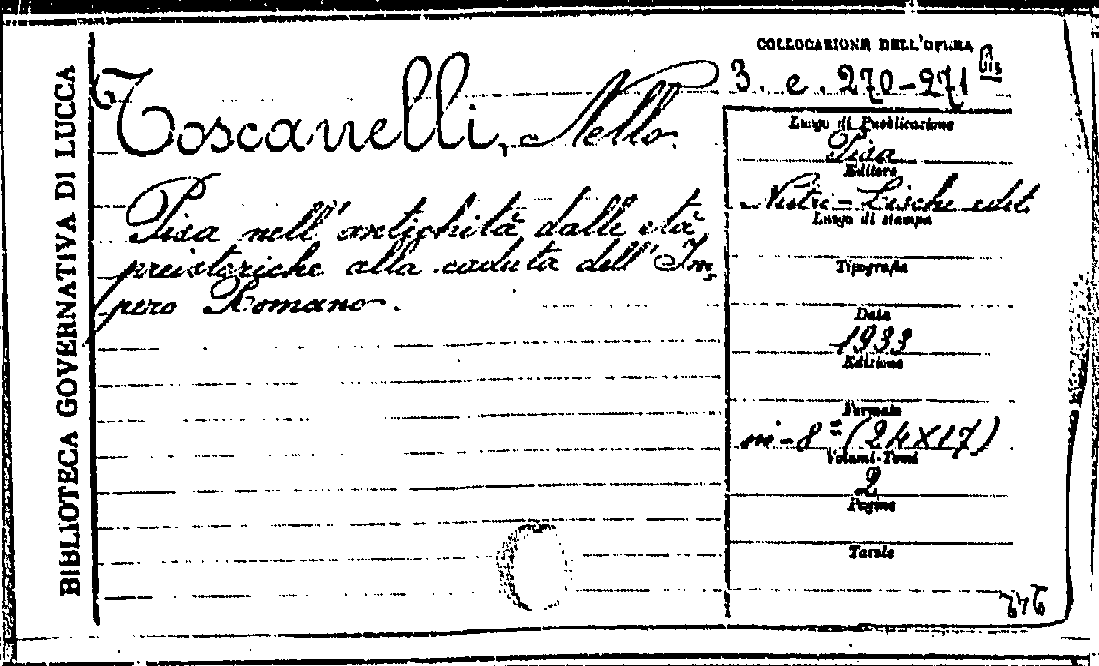 BIBLIOTECA GOVERNATIVA DI LUCCA
Toscanelli, Nello.
Pisa nell'antichità dalle età
preistoriche alla caduta dell'Im-
pero Romano.
COLLOCAZIONE DELL'OPERA
3. e. 270-271 bis
Luogo di Pubblicazione
Pisa
Editore
Nistri-Lischi edit.
Luogo di stampa
Tipografia
Data
1933
Edizione
Formato
in-8° (24X17)
Volumi-Tomi
2
Pagine
Tavole